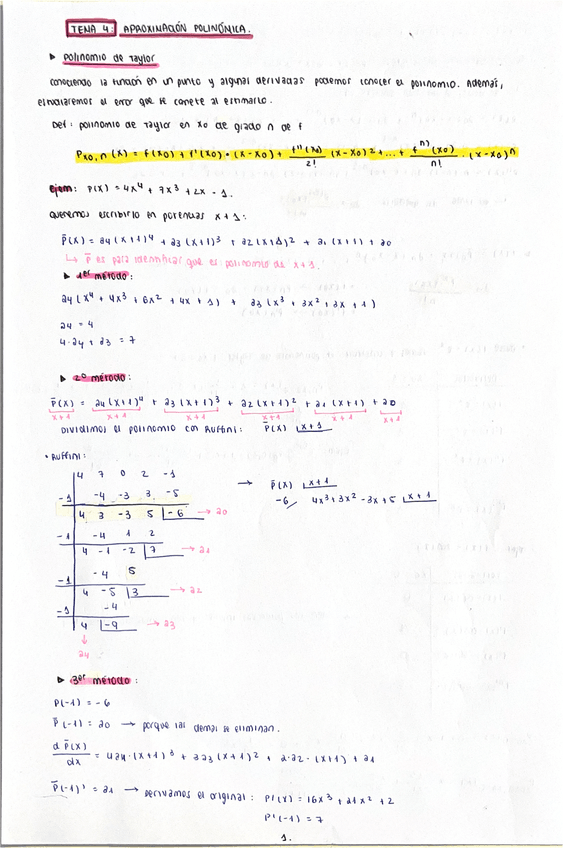 TEMA 4: APROXIMACIÓN POLINÓMICA.
▸ Polinomio de Taylor
conociendo la función en un punto y algunas derivadas podemos conocer el polinomio. Además,
estudiaremos el error que se comete al estimarlo.
Def: polinomio de Taylor en x0 de grado n de f
P x0,n (x) = f(x0) + f'(x0)·(x-x0) + f''(x0)/2! (x-x0)² + ... + f^n)(x0)/n! ·(x-x0)^n
Ejem: P(x) = 4x⁴ + 7x³ + 2x - 1.
queremos escribirlo en potencias x+1:
P̄(x) = a4(x+1)⁴ + a3(x+1)³ + a2(x+1)² + a1(x+1) + a0
↳ P̄ es para identificar que es polinomio de x+1.
▸ 1er método:
a4(x⁴ + 4x³ + 6x² + 4x + 1) + a3(x³ + 3x² + 3x + 1)
a4 = 4
4·a4 + a3 = 7
▸ 2º método:
P̄(x) = a4(x+1)⁴ + a3(x+1)³ + a2(x+1)² + a1(x+1) + a0
x+1 x+1 x+1 x+1 x+1 x+1
Dividimos el polinomio con Ruffini: P̄(x) |x+1
• Ruffini:
4 7 0 2 -1
→ P̄(x) |x+1
-1 | -4 -3 3 -5
-6 4x³+3x²-3x+5 |x+1
4 3 -3 5 |-6 → a0
-1 | -4 1 2
4 -1 -2 |7 → a1
-1 | -4 5
4 -5 |3 → a2
-1 | -4
4 |-9 → a3
↓
a4
▸ 3er método:
P(-1) = -6
P̄(-1) = a0 → porque las demás se eliminan.
d P̄(x)/dx = 4a4·(x+1)³ + 3a3(x+1)² + 2·a2·(x+1) + a1
P̄(-1)' = a1 → Derivamos el original: P'(x) = 16x³ + 21x² + 2
P'(-1) = 7
1.